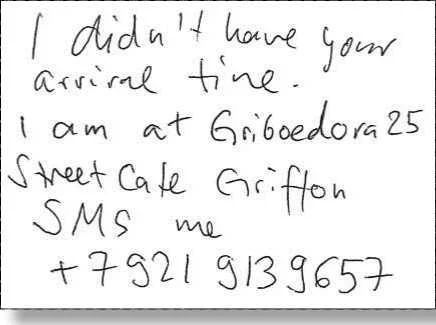 I didn't have your
arrival time.
I am at Griboedova 25
Street Cafe Griffon
SMS me
+7 921 9139657